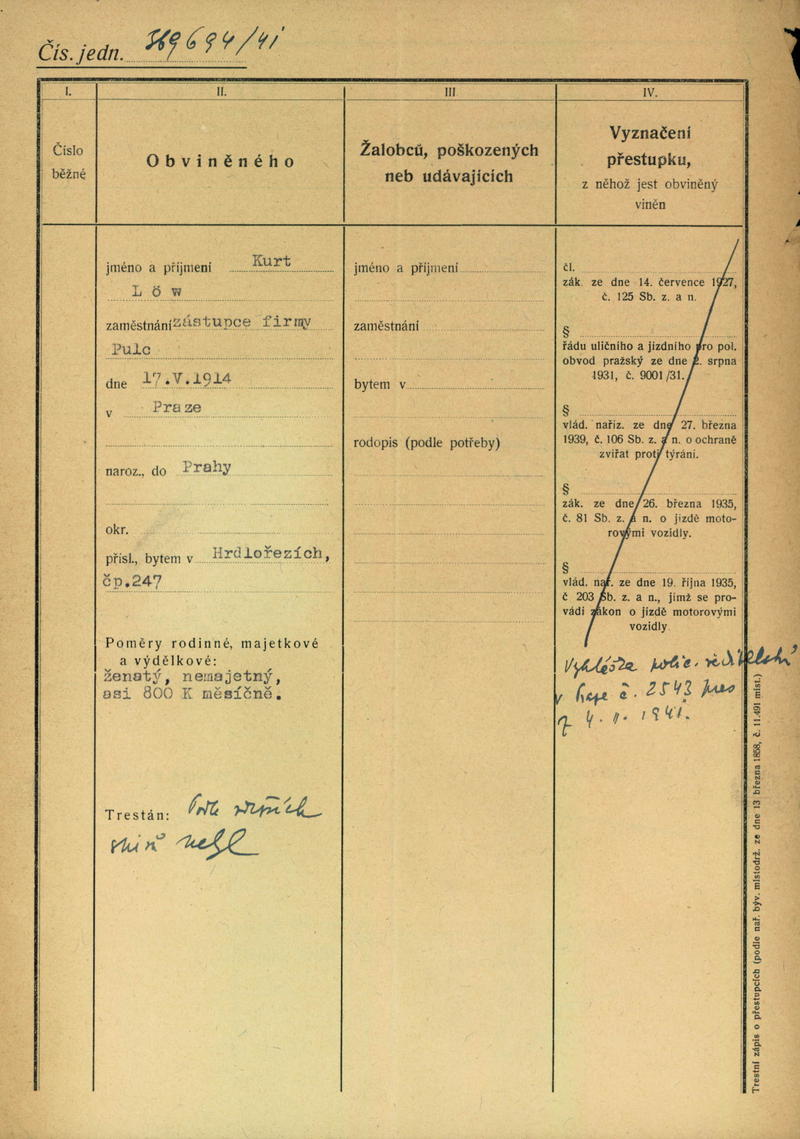 Čís. jedn. 369694/41
I.
II.
III
IV.
Číslo
běžné
Obviněného
Žalobců, poškozených
neb udávajících
Vyznačení
přestupku,
z něhož jest obviněný
viněn
jméno a příjmení Kurt
Löw
zaměstnání zástupce firmy
Pulc
dne 17.V.1914
v Praze
naroz., do Prahy
okr.
přísl., bytem v Hrdlořezích,
čp.247
Poměry rodinné, majetkové
a výdělkové:
ženatý, nemajetný,
asi 800 K měsíčně.
Trestán:
jméno a příjmení
zaměstnání
bytem v
rodopis (podle potřeby)
čl.
zák. ze dne 14. července 1927,
č. 125 Sb. z. a n.
§
řádu uličního a jízdního pro pol.
obvod pražský ze dne 2. srpna
1931, č. 9001/31.
§
vlád. naříz. ze dne 27. března
1939, č. 106 Sb. z. a n. o ochraně
zvířat proti týrání.
§
zák. ze dne 26. března 1935,
č. 81 Sb. z. a n. o jízdě moto-
rovými vozidly.
§
vlád. nař. ze dne 19. října 1935,
č 203 Sb. z. a n., jímž se pro-
vádí zákon o jízdě motorovými
vozidly.
Vyhláška
v č. 2543
z 4. 1941.
Trestní zápis o přestupcích (podle nař. býv. místodrž. ze dne 13 března 1858, č. 11.491 míst.)